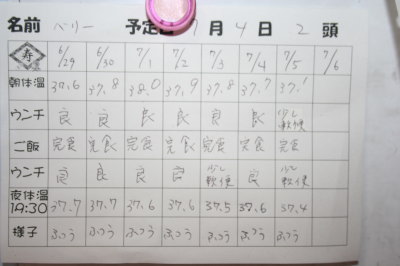 名前 ベリー 予定日 7月4日 2頭
寿 6/29 6/30 7/1 7/2 7/3 7/4 7/5 7/6
朝体温 37,6 37,8 38,0 37,9 37,8 37,7 37,1
ウンチ 良 良 良 良 良 良 少し軟便
ご飯 完食 完食 完食 完食 完食 完食 完食
ウンチ 良 良 良 良 少し軟便 良 少し軟便
夜体温 19:30 37,7 37,7 37,6 37,6 37,5 37,6 37,4
様子 ふつう ふつう ふつう ふつう ふつう ふつう ふつう